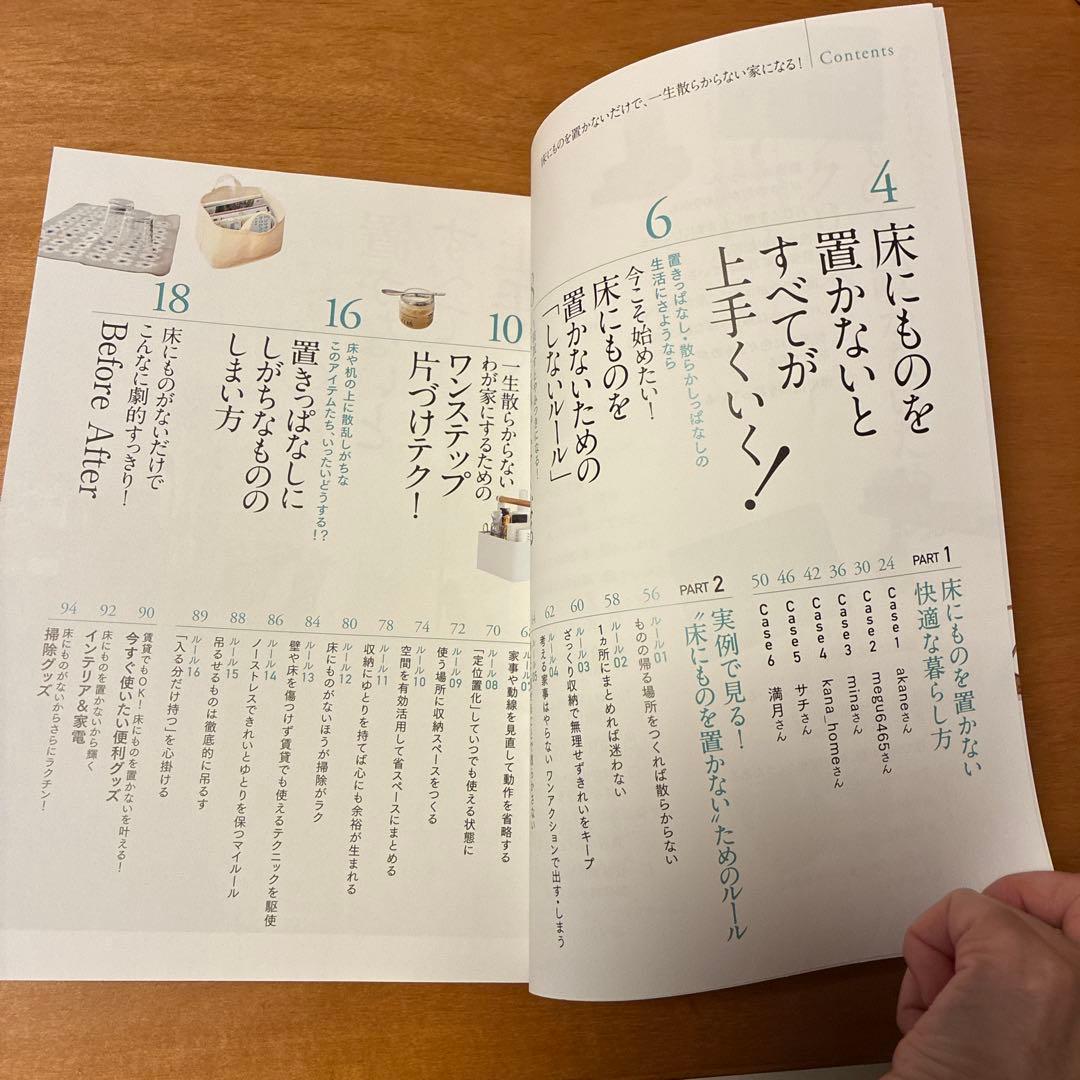 床にものを置かないだけで、一生散らからない家になる！
Contents
4
床にものを
置かないと
すべてが
上手くいく！
6
置きっぱなし・散らかしっぱなしの
生活にさようなら
今こそ始めたい！
床にものを
置かないための
「しないルール」
PART 1
床にものを置かない
快適な暮らし方
24 Case1 akaneさん
30 Case2 megu6465さん
36 Case3 minaさん
42 Case4 kana_homeさん
46 Case5 サチさん
50 Case6 満月さん
PART 2
実例で見る！
“床にものを置かない”ためのルール
56 ルール01
ものの帰る場所をつくれば散らからない
58 ルール02
1ヵ所にまとめれば迷わない
60 ルール03
ざっくり収納で無理せずきれいをキープ
62 ルール04
考える家事はやらない ワンアクションで出す・しまう
10
一生散らからない
わが家にするための
ワンステップ
片づけテク！
16
床や机の上に散乱しがちな
このアイテムたち、いったいどうする!?
置きっぱなしに
しがちなものの
しまい方
18
床にものがないだけで
こんなに劇的すっきり！
Before After
家事や動線を見直して動作を省略する
70 ルール08
「定位置化」していつでも使える状態に
72 ルール09
使う場所に収納スペースをつくる
74 ルール10
空間を有効活用して省スペースにまとめる
78 ルール11
収納にゆとりを持て心にも余裕が生まれる
80 ルール12
床にものがないほうが掃除がラク
84 ルール13
壁や床を傷つけず賃貸でも使えるテクニックを駆使
86 ルール14
ノーストレスできれいとゆとりを保つマイルール
88 ルール15
吊るせるものは徹底的に吊るす
89 ルール16
「入る分だけ持つ」を心掛ける
90
賃貸でもOK！ 床にものを置かないを叶える！
今すぐ使いたい便利グッズ
92
床にものを置かないから輝く
インテリア＆家電
94
床にものがないからさらにラクチン！
掃除グッズ